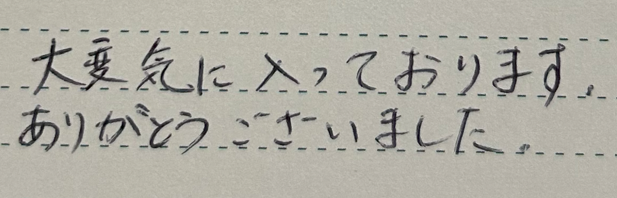 大変気に入っております。
ありがとうございました。